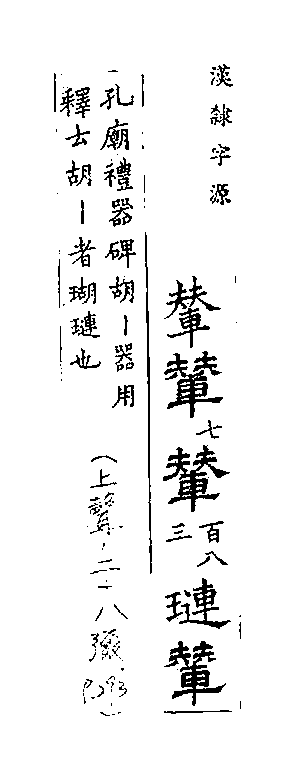 漢隸字源
輦輦七輦百八三璉輦
孔廟禮器碑胡丨器用
釋云胡丨者瑚璉也
（上聲．二．八獮．P.93）